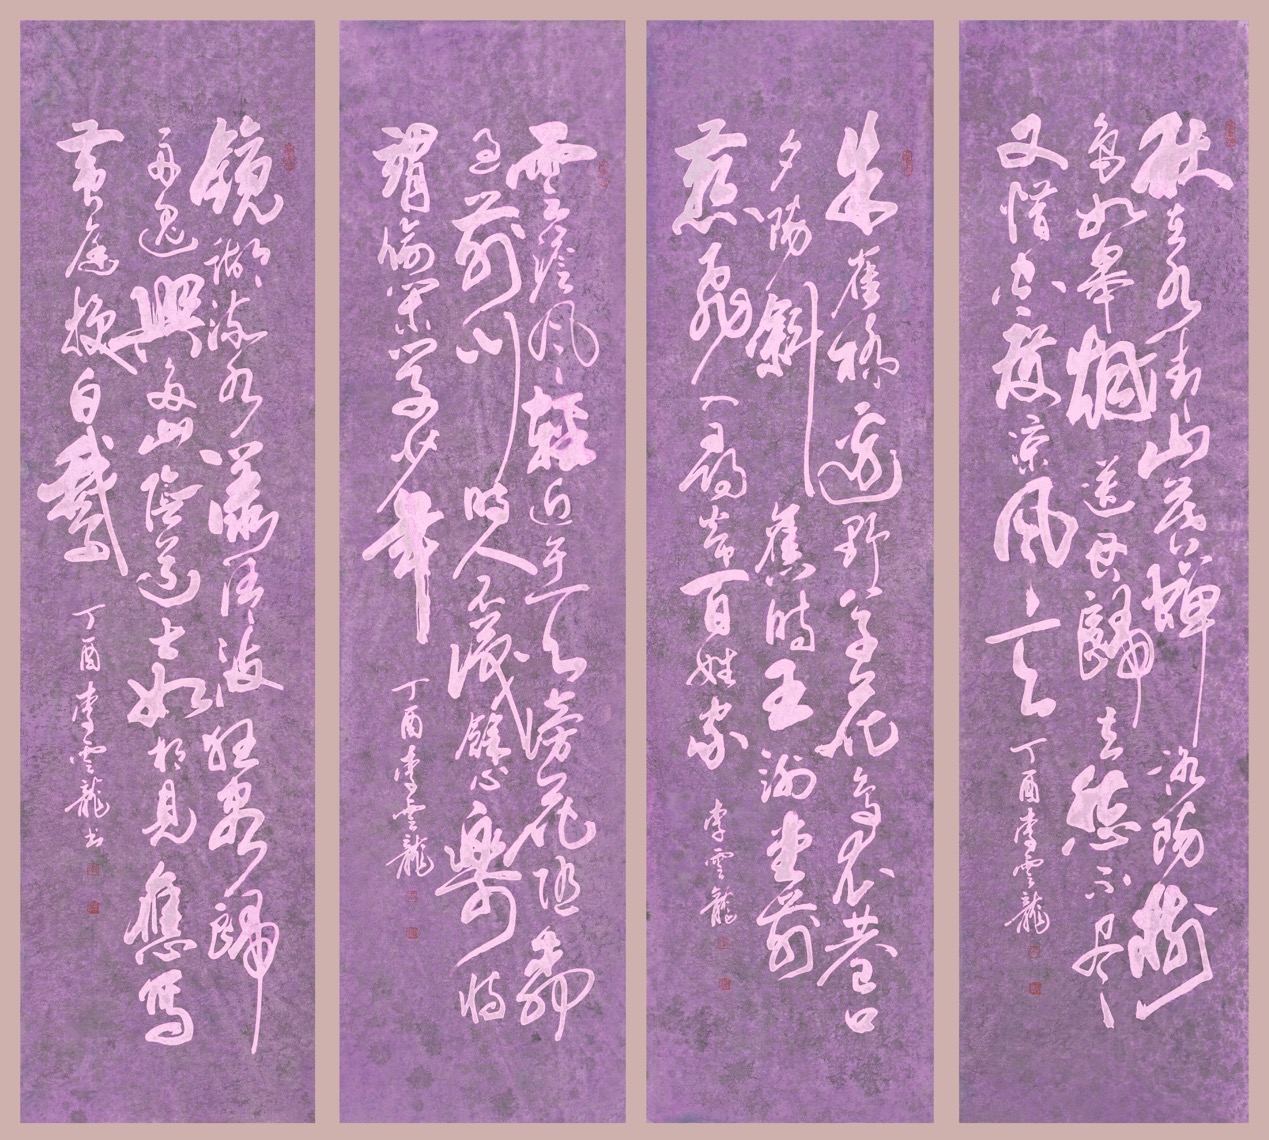 秋在水清山暮蟬洛陽樹
色鳴皋烟送君歸去愁不盡
又惜空度涼風天
丁酉李雲龍
朱雀橋邊野草花烏衣巷口
夕陽斜舊時王謝堂前
燕飛入尋常百姓家
李雲龍
雲淡風輕近午天傍花随柳
過前川時人不識餘心樂将
謂偷閑學少年
丁酉李雲龍
鏡湖流水漾清波狂客歸
舟逸興多山陰道士如相見應寫
黄庭换白鵝
丁酉李雲龍书